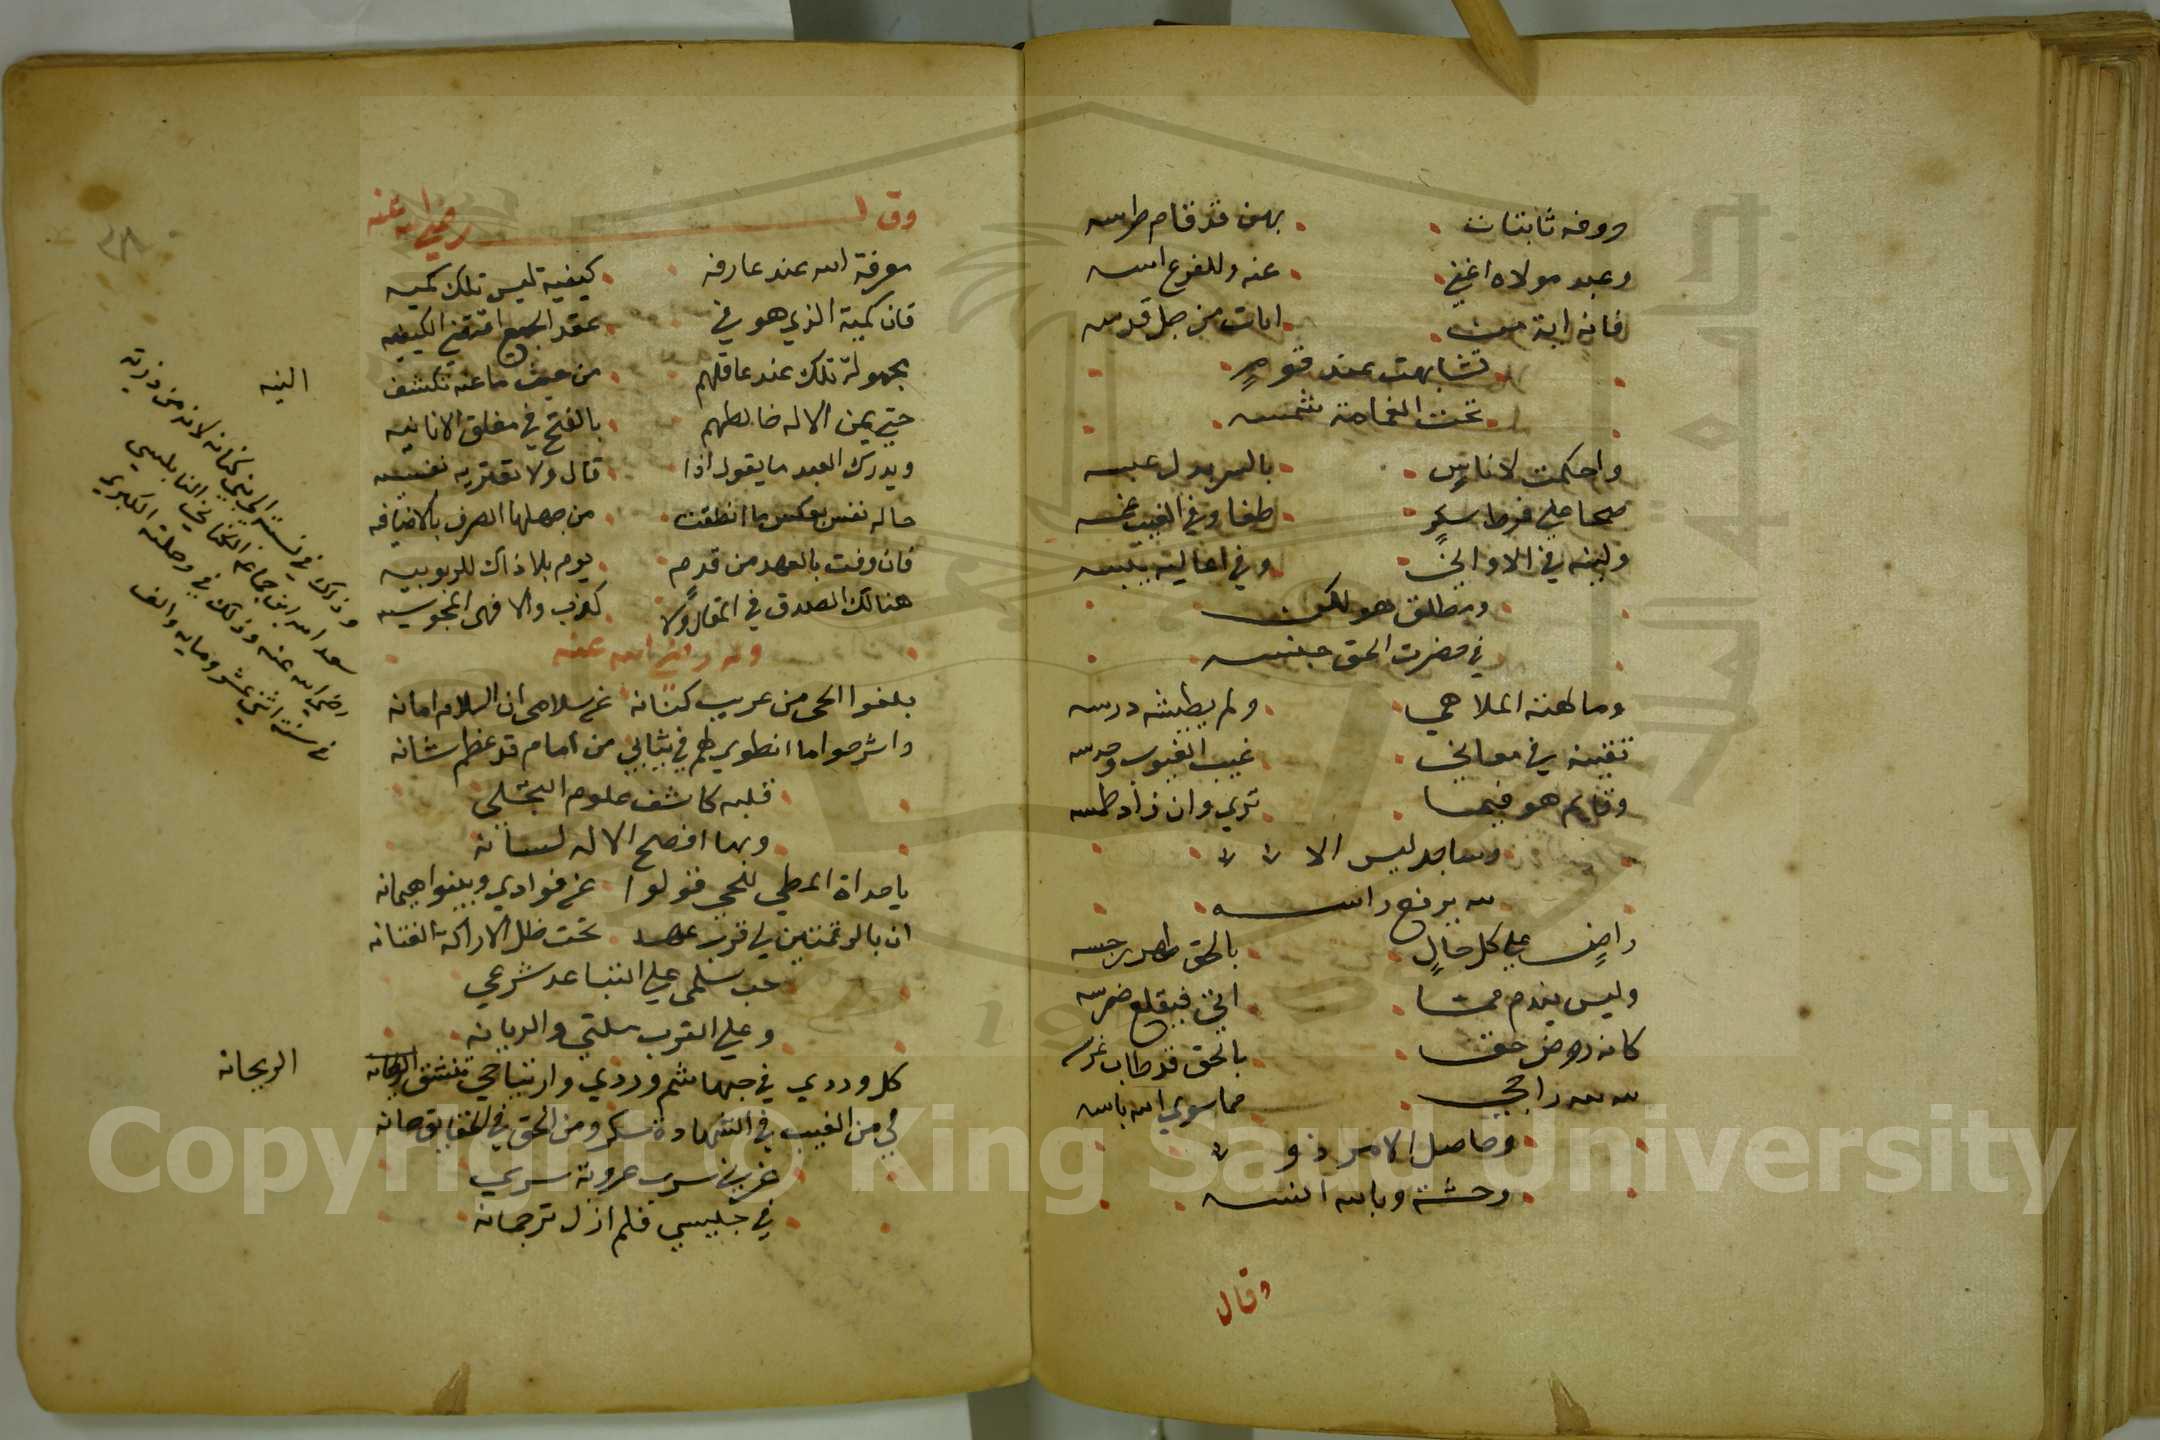 وروضه ثابتات بهن قد قام طرسه
وعبد مولاه اغني عنه وللفرع اسه
فانه اية من ايات من جل قدسه
تشابهت عند قومٍ
تحت الغمامة شمسه
واحكمت لاناسٍ
صحا علي فرط سكرٍ طفا وفي الغيب غمسه
ولبنه في الاواني وفي اعاليه يبسه
ومطلق هو لكن
في حضرت الحق حبسه
وما لهته الملاهي ولم يطيشه درسه
تفنيه في معاني غيب الغيوب وحدسه
وقايم هو فيما تري وان زاد طمسه
وساجد ليس الا
لله يرفع راسه
راضٍ علي كل حالٍ بالحق طهر رجسه
وليس يندم مما اني فيقلع ضرسه
كانه روض حق بالحق قد طاب غرسه
لله لله راجي مما سوي الله ياسه
وحاصل الامر ذو
وحشة وبالله انسه
وقال
وقال رضي الله عنه
معرفة الله عند عارفه كيفية ليس تلك كميه
فان كمية الذي هو في عقد الجميع اقتضي الكيفيه
مجهولة تلك عند عاقلهم من حيث ما عنه تكشف النيه
حتي يمن الاله خالطهم بالفتح في مغلق الانانيه
ويدرك العبد ما يقول اذا قال ولا تعتريه نفسيه
حاله نفس بعكس ما انطقت من جهلها الصرف بالاضافيه
فان وفت بالعهد من قدمٍ يوم بلا ذاك للربوبيه
هنالك الصدق في المقال ولا كذب والا فهي المجوسيه
وله رضي الله عنه
بلغوا الحي من عريب كنانه عن سلامي ان السلام امانه
واشرحوا ما انطوي لهم في ثيابي من امام قد عظم شانه
قلبه كاشف علوم التجلي
وبها افصح الاله لسانه
يا حداة المطي للحي قولوا عن فوادي وبينوا هيمانه
ان بالرقمتين لي قرب عهد تحت ظل الاراكة الفتانه
حب سلمي علي التباعد شرعي
وعلي القرب ملتي والديانه
كل وردي في حبها شم وردي وارتياحي تنشق الريحانه
لي من الغيب في الشهادة سكر ومن الحق في الحقايق حانه
غرني سرب حروبة سربي
في جليسي فلم ازل ترجمانه
النيه
وذلك في نسبته الي بني كنانه لانه من ذرية
سعد الله ابن جماعة الكناني النابلسي
رضي الله عنه وذلك في رحلته الكبري
في سنة اثني عشر ومايه والف
الريحانه
Copyright © King Saud University